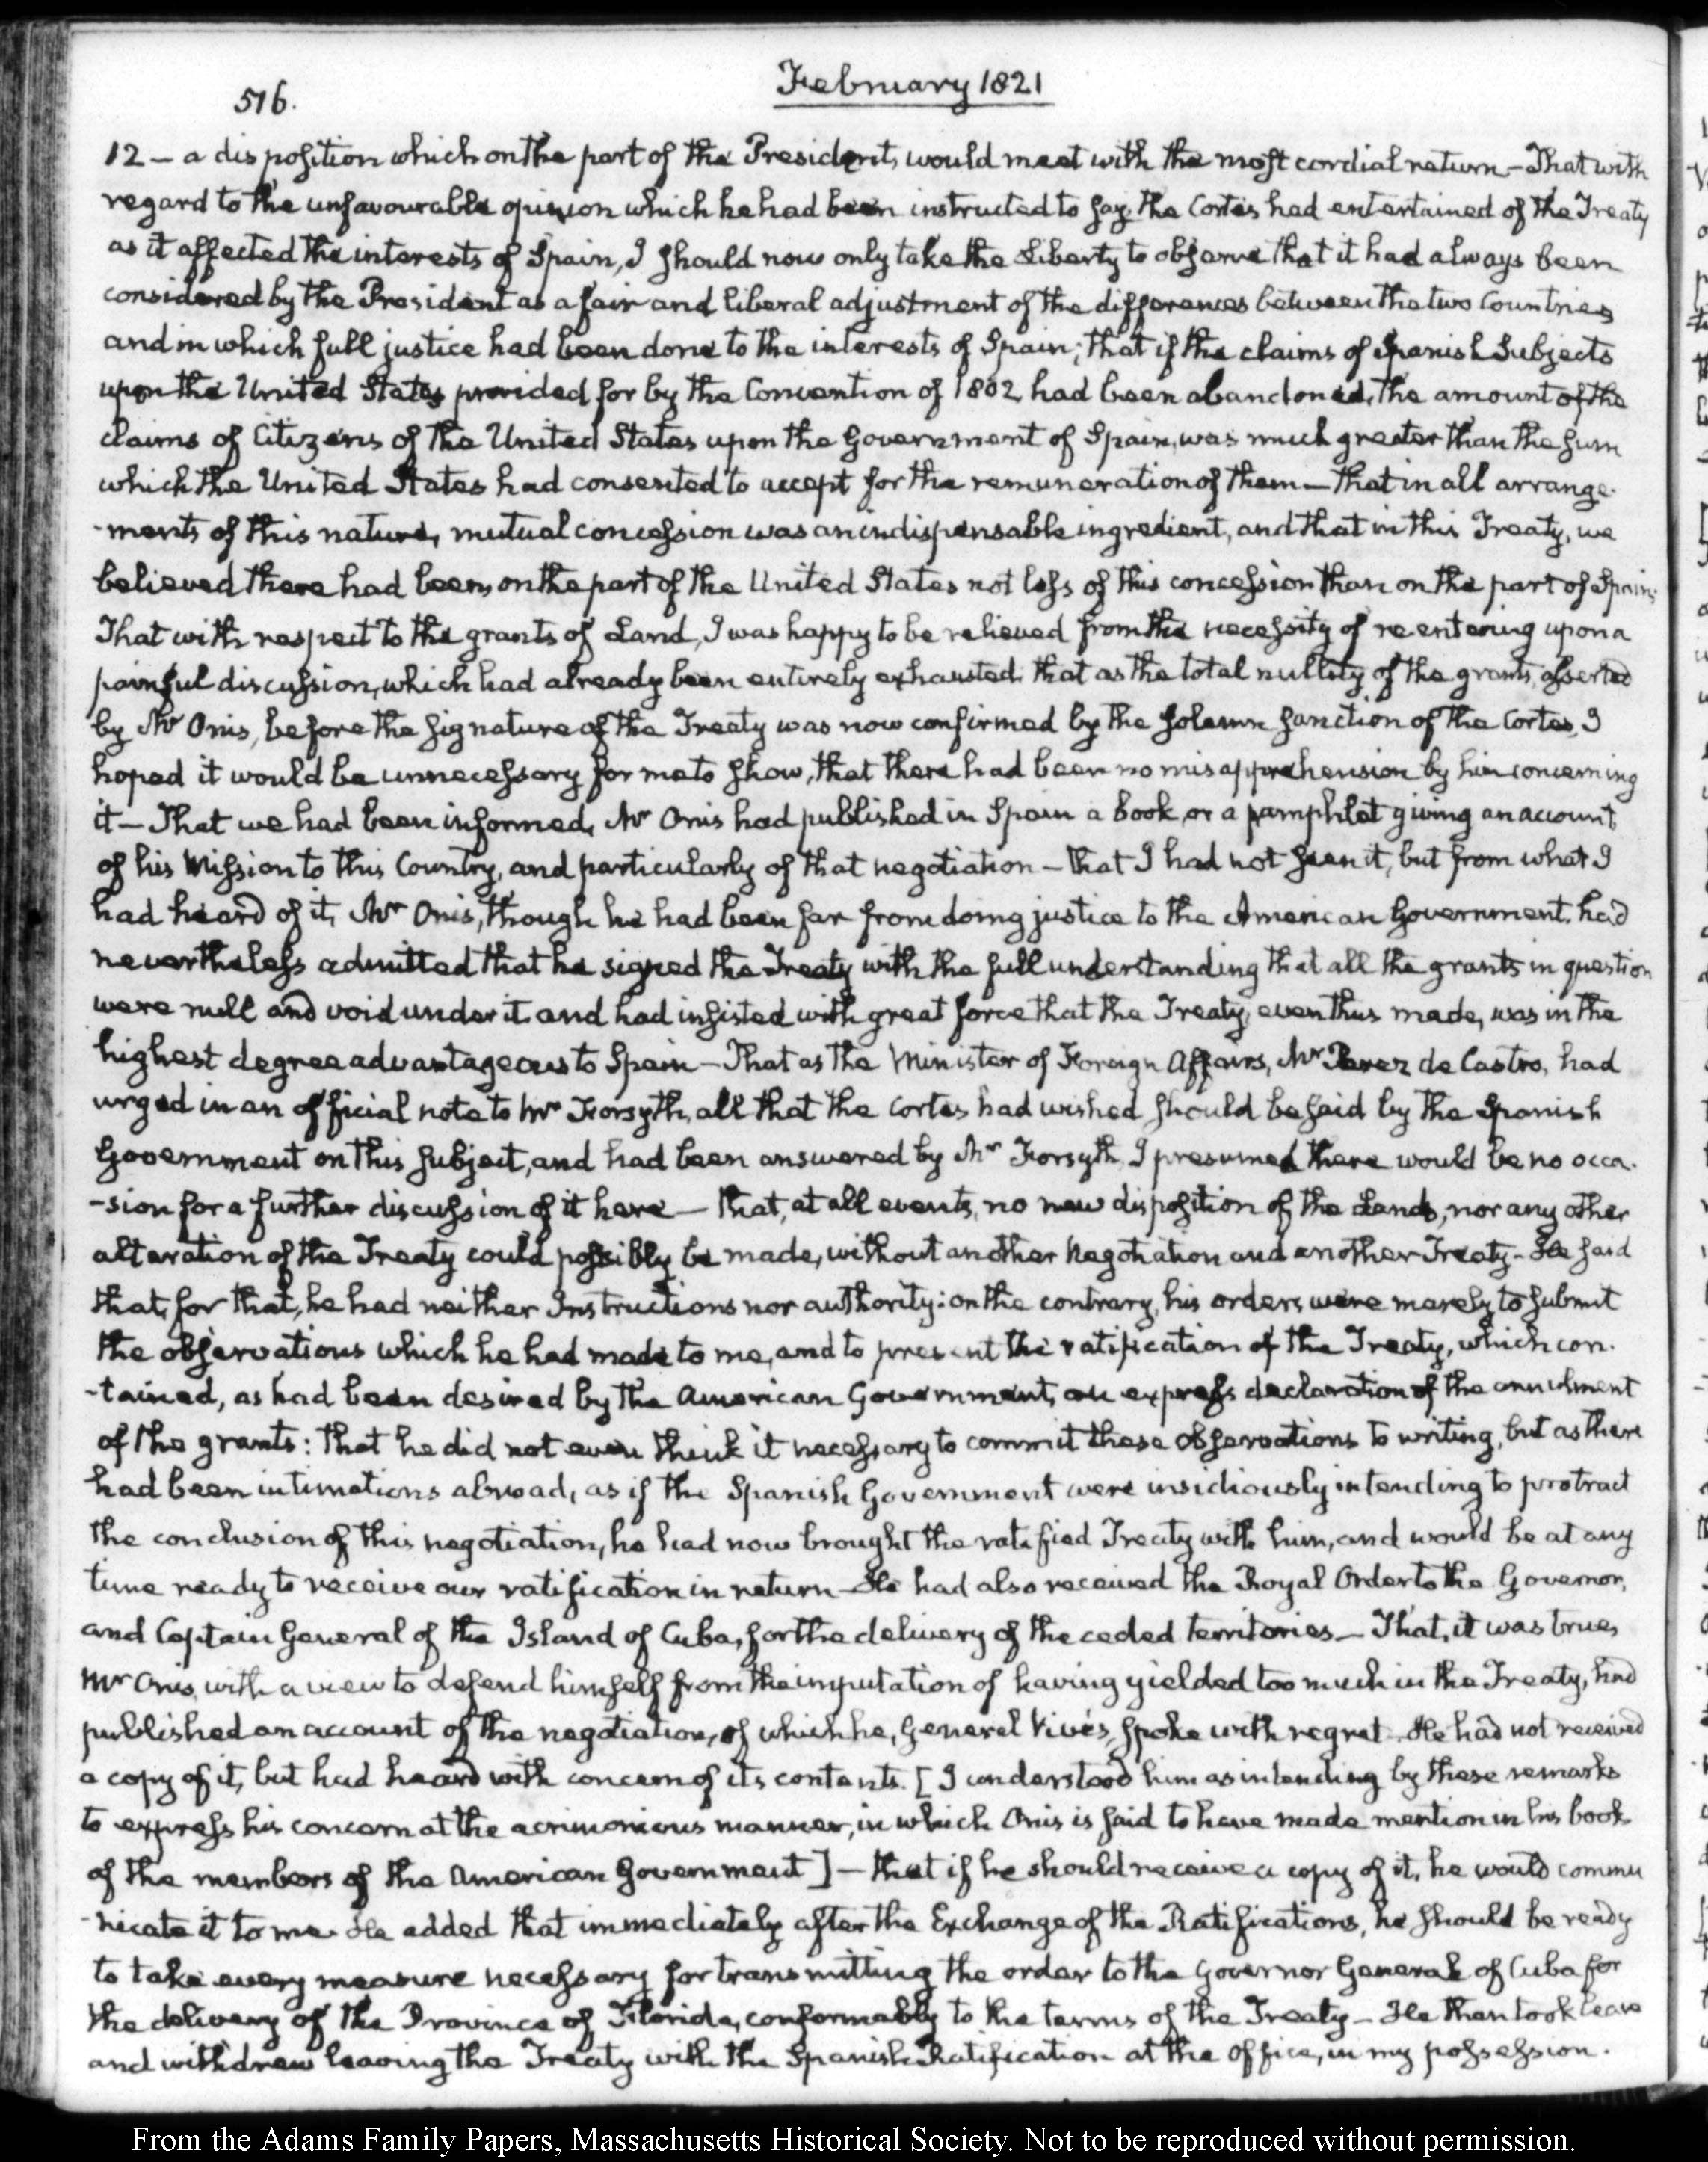 516.
February 1821
12 — a disposition which on the part of the President, would meet with the most cordial return — That with
regard to the unfavourable opinion which he had been instructed to say, the Cortes had entertained of the Treaty
as it affected the interests of Spain, I should now only take the Liberty to observe that it had always been
considered by the President as a fair and liberal adjustment of the differences between the two Countries
and in which full justice had been done to the interests of Spain; that if the claims of Spanish Subjects
upon the United States provided for by the Convention of 1802 had been abandoned, the amount of the
claims of Citizens of the United States upon the Government of Spain, was much greater than the sum
which the United States had consented to accept for the remuneration of them — that in all arrange-
-ments of this nature, mutual concession was an indispensable ingredient, and that in this Treaty, we
believed there had been, on the part of the United States not less of this concession than on the part of Spain.
That with respect to the grants of Land, I was happy to be relieved from the necessity of re-entering upon a
painful discussion, which had already been entirely exhausted, that as the total nullity of the grants, asserted
by Mr Onis, before the signature of the Treaty was now confirmed by the solemn sanction of the Cortes, I
hoped it would be unnecessary for me to show, that there had been no misapprehension by him concerning
it — That we had been informed, Mr Onis had published in Spain a book, or a pamphlet giving an account
of his Mission to this Country, and particularly of that negotiation — that I had not seen it, but from what I
had heard of it, Mr Onis, though he had been far from doing justice to the American Government, had
nevertheless admitted that he signed the Treaty with the full understanding that all the grants in question
were null and void under it and had insisted with great force that the Treaty, even thus made, was in the
highest degree advantageous to Spain — That as the Minister of Foreign Affairs, Mr Perez de Castro, had
urged in an official note to Mr Forsyth, all that the Cortes had wished should be said by the Spanish
Government on this subject, and had been answered by Mr Forsyth, I presumed there would be no occa-
-sion for a further discussion of it here — that, at all events, no new disposition of the Lands, nor any other
alteration of the Treaty could possibly be made, without another Negotiation and another Treaty — He said
that, for that, he had neither Instructions nor authority: on the contrary, his orders were merely to submit
the observations which he had made to me, and to present the ratification of the Treaty, which con-
-tained, as had been desired by the American Government, an express declaration of the annulment
of the grants: that he did not even think it necessary to commit these observations to writing, but as there
had been intimations abroad, as if the Spanish Government were insidiously intending to protract
the conclusion of this negotiation, he had now brought the ratified Treaty with him, and would be at any
time ready to receive our ratification in return — He had also received the Royal Order to the Governor,
and Captain General of the Island of Cuba, for the delivery of the ceded territories — That, it was true,
Mr Onis, with a view to defend himself from the imputation of having yielded too much in the Treaty, had
published an account of the negotiation, of which he, General Vives, spoke with regret. He had not received
a copy of it, but had heard with concern of its contents. [I understood him as intending by these remarks
to express his concern at the acrimonious manner, in which Onis is said to have made mention in his book
of the members of the American Government] — that if he should receive a copy of it, he would commu
-nicate it to me. He added that immediately after the Exchange of the Ratifications, he should be ready
to take every measure necessary for transmitting the order to the Governor General of Cuba for
the delivery of the Province of Florida, conformably to the terms of the Treaty — He then took leave
and withdrew leaving the Treaty with the Spanish Ratification at the office, in my possession.
From the Adams Family Papers, Massachusetts Historical Society. Not to be reproduced without permission.